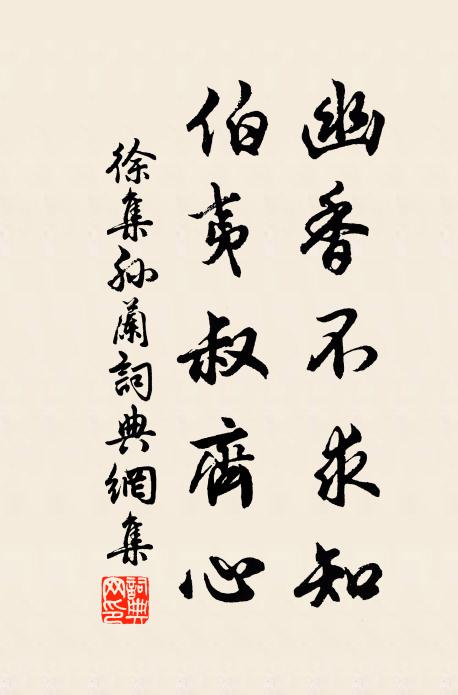 幽香不求知
伯夷叔齊心
徐集孙蘭詞典網集
詞典网印